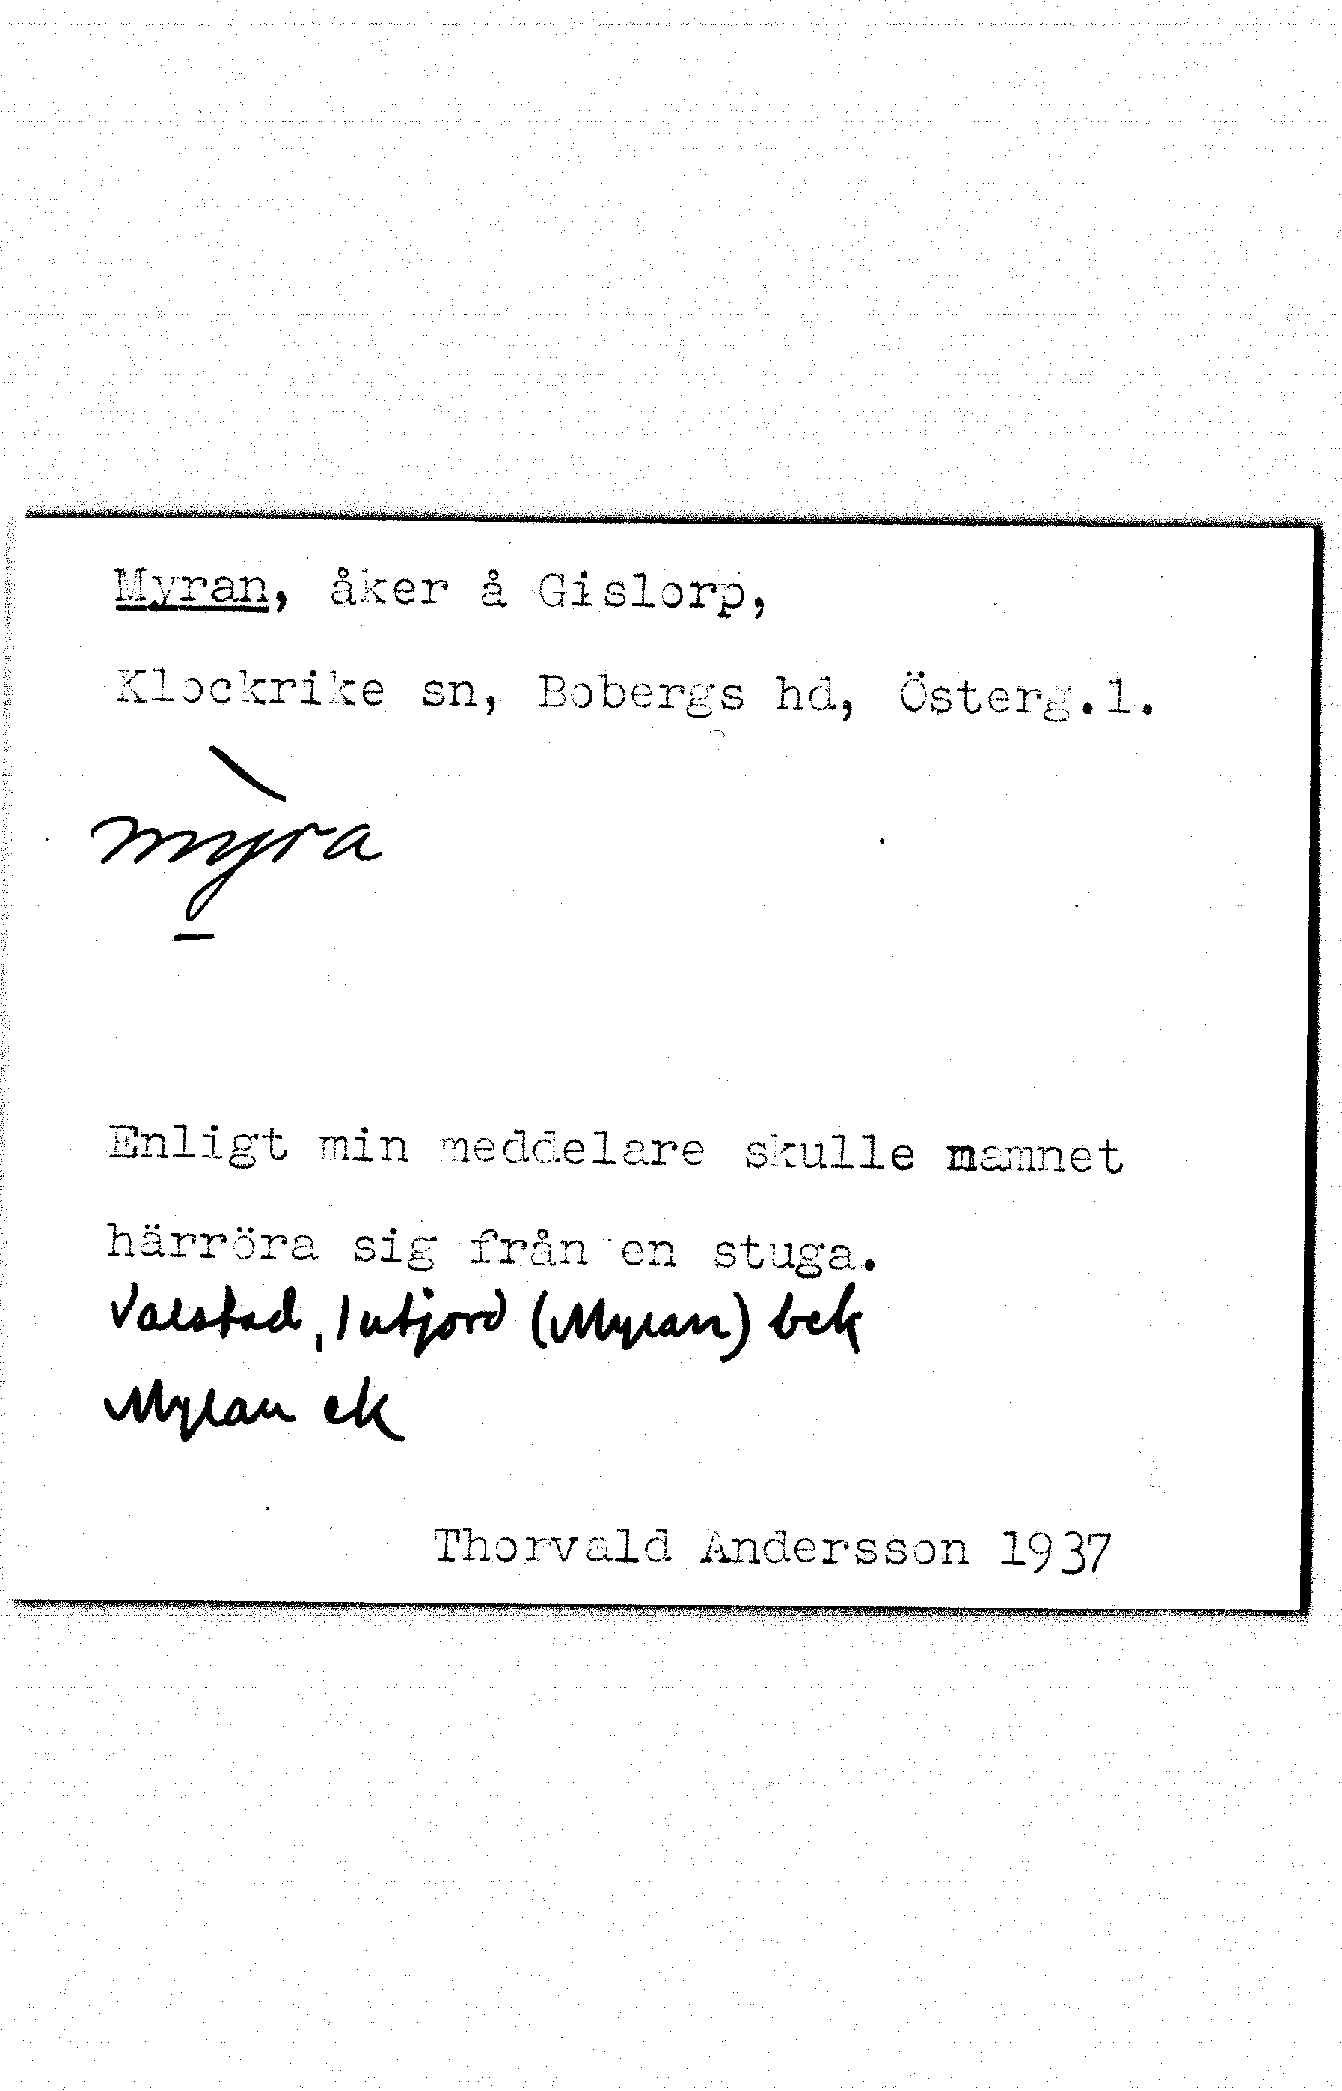 Myran, åker å Gislorp,
Klockrike sn, Bobergs hd, Österg.l.
myra
Enligt min meddelare skulle namnet
härröra sig från en stuga.
Valstad, Intjord (Myran) bek
Myran ek
Thorvald Andersson 1937